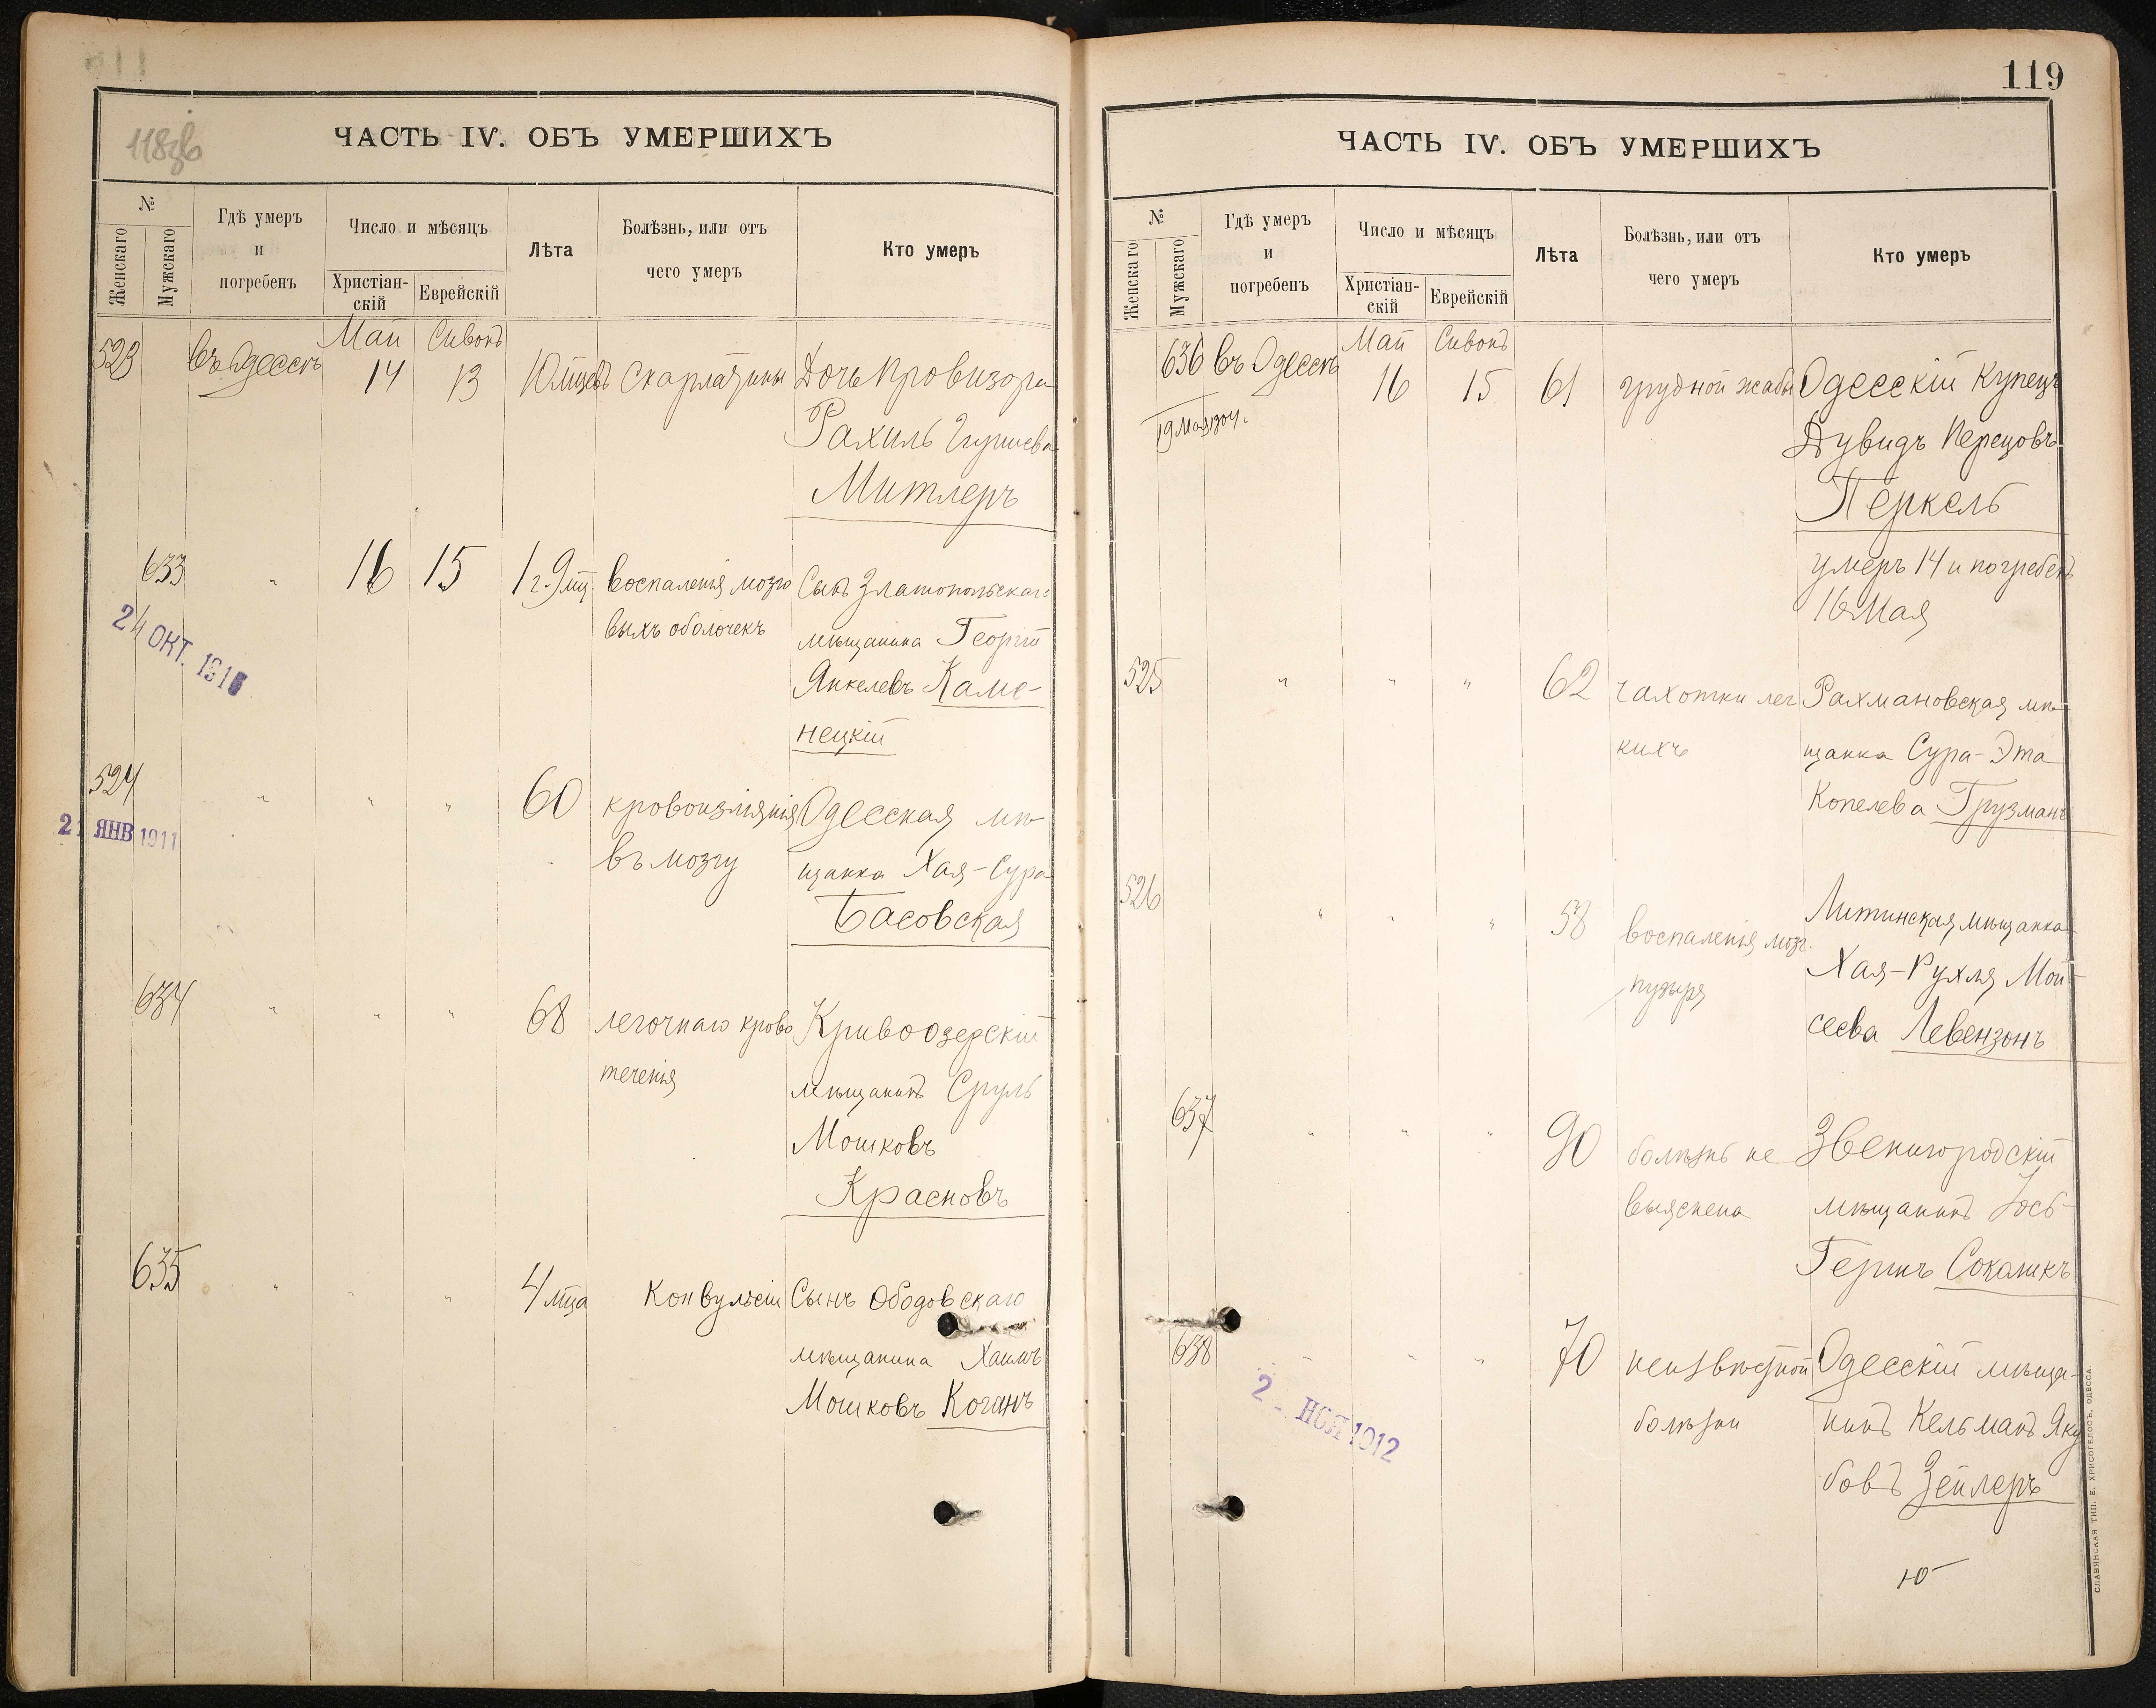 118 зв
ЧАСТЬ IV. ОБЪ УМЕРШИХЪ
№
Женскаго
Мужскаго
Гдѣ умеръ
и
погребенъ
Число и мѣсяцъ
Христіан-
скій
Еврейскій
Лѣта
Болѣзнь, или отъ
чего умеръ
Кто умеръ
Май Сивонъ
523 въ Одессѣ 14 13 10 мцевъ Скарлатины Дочь Провизора
Рахиль
Митлеръ
633 " 16 15 1 г. 9 мц. воспаленія мозго Сынъ Златопольскаго
выхъ оболочекъ мѣщанина Георгій
24 ОКТ. 1916
Янкелевъ Каме-
нецкій
524 " " " 60 кровоизліянія Одесская мѣ-
21 ЯНВ 1911
въ мозгу щанка Хая-Сура
Басовская
634 " " " 68 легочнаго крово Кривоозерскій
теченія мѣщанинъ Сруль
Мошковъ
Красновъ
635 " " " 4 мца Конвульсіи Сынъ Ободовскаго
мѣщанина Хаимъ
Мошковъ Коганъ
119
ЧАСТЬ IV. ОБЪ УМЕРШИХЪ
№
Женскаго
Мужскаго
Гдѣ умеръ
и
погребенъ
Число и мѣсяцъ
Христіан-
скій
Еврейскій
Лѣта
Болѣзнь, или отъ
чего умеръ
Кто умеръ
Май Сивонъ
636 въ Одессѣ 16 15 61 грудной жабы Одесскій Купецъ
19 Мая
Дувидъ Перецовъ
Перкель
умеръ 14 и погребенъ
16 Мая
525 " " " 62 чахотки лег Рахмановская мѣ-
кихъ щанка Сура-Эта
Копелева Грузманъ
526 " " " 58 воспаленія моч. Литинская мѣщанка
пузыря Хая-Рухля Мои-
сеева Левензонъ
637 " " " 90 болѣзнь не Звенигородскій
выяснена мѣщанинъ Іось-
Гершъ Сокаликъ
638 " " " 70 неизвѣстной Одесскій мѣща-
2 - НОЯ 1912
болѣзни нинъ Кельманъ Яку
бовъ Зейлеръ
СЛАВЯНСКАЯ ТИП. Е. ХРИСОГЕЛОСЪ, ОДЕССА.